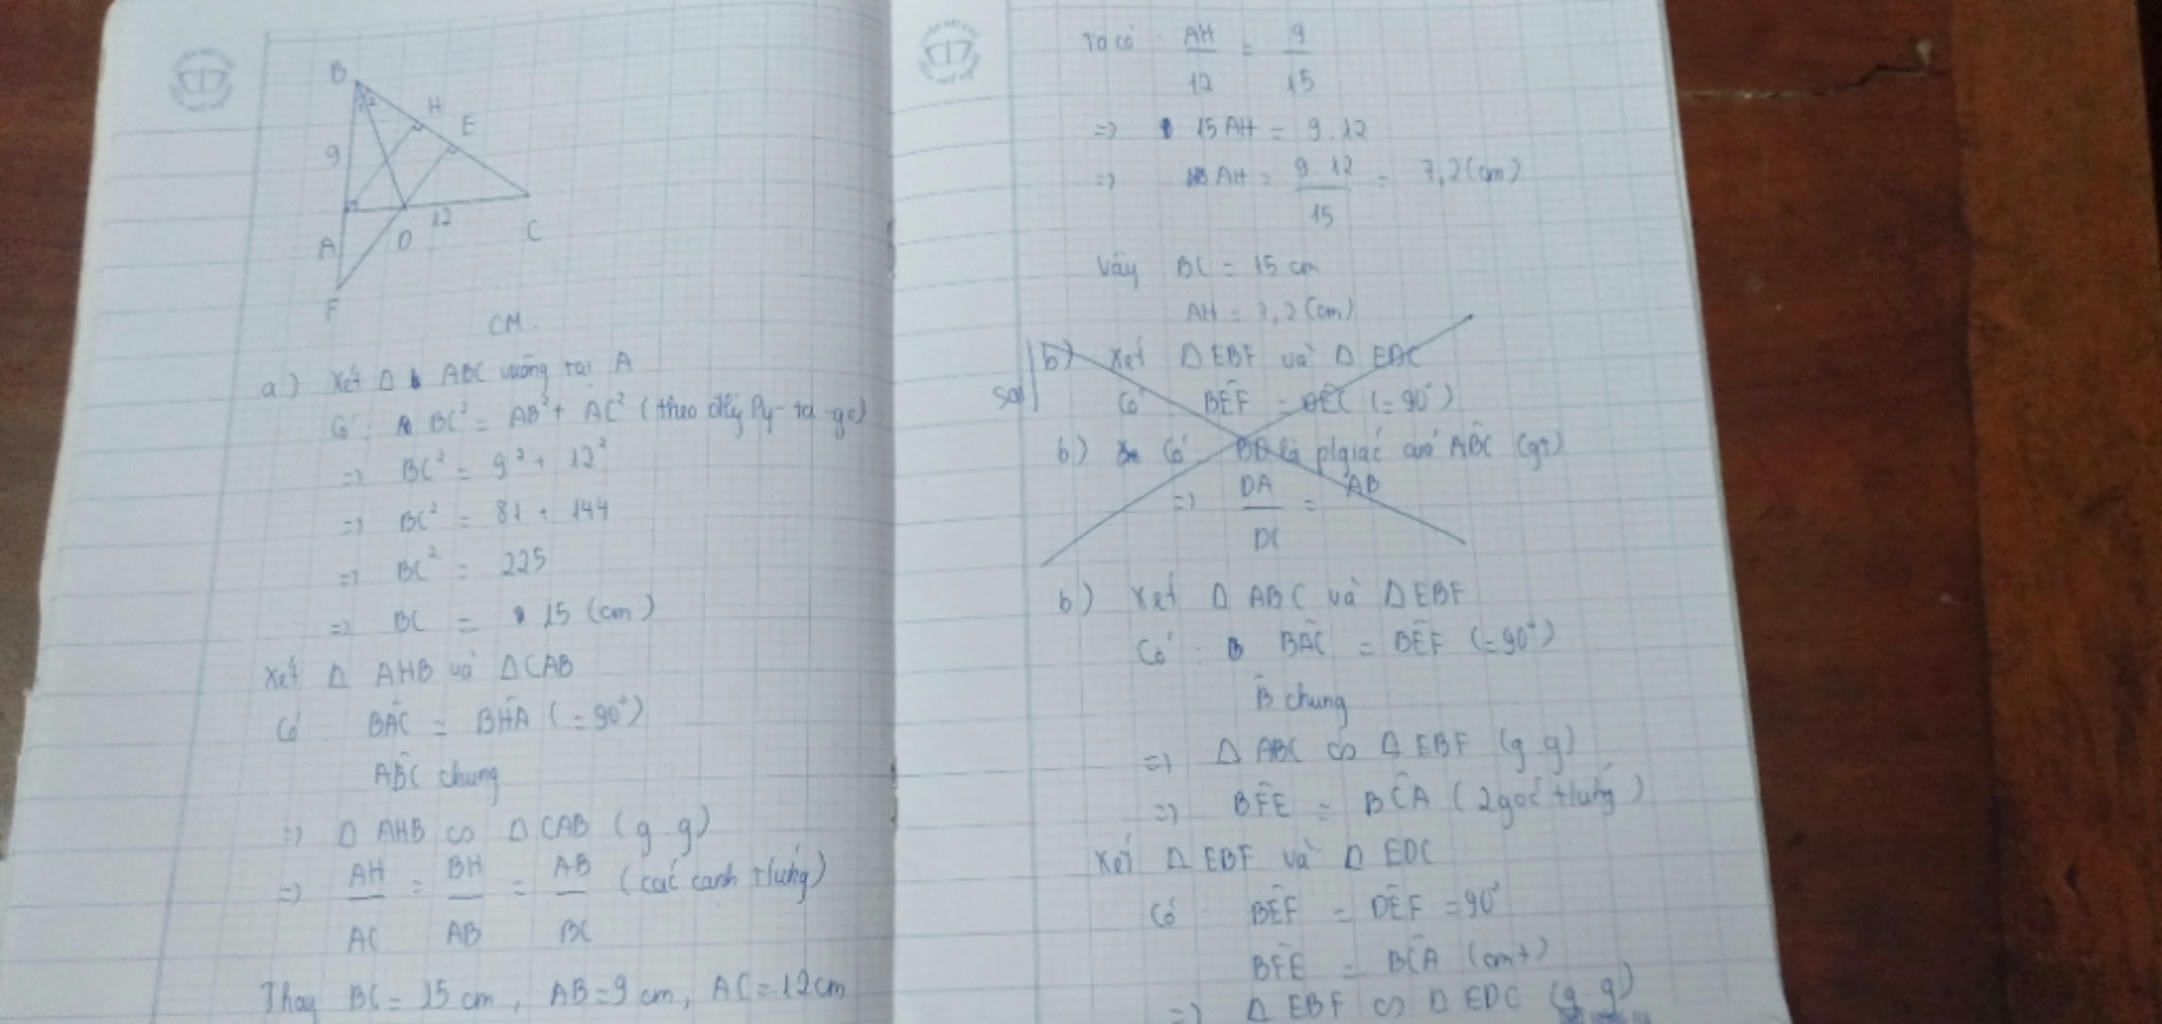 B
H
E
9
12
A
D
C
F
CM.
a) Xét Δ ABC vuông tại A
Có: BC² = AB² + AC² (theo đlý Py-ta-go)
=> BC² = 9² + 12²
=> BC² = 81 + 144
=> BC² = 225
=> BC = 15 (cm)
Xét Δ AHB và Δ CAB
Có: BÂC = BĤA (= 90°)
AB̂C chung
=> Δ AHB ∽ Δ CAB (g.g)
=> AH/AC = BH/AB = AB/BC (các cạnh tứ)
Thay BC = 15 cm, AB = 9 cm, AC = 12 cm
Ta có: AH/12 = 9/15
=> 15 AH = 9.12
=> AH = 9.12/15 = 7,2 (cm)
Vậy BC = 15 cm
AH = 7,2 (cm)
b) Xét Δ EBF và Δ EDC
sai
Có BÊF = DÊC (= 90°)
b) Có BD là p/giác của AB̂C (gt)
=> DA/DC = AB
b) Xét Δ ABC và Δ EBF
Có: BÂC = BÊF (= 90°)
B̂ chung
=> Δ ABC ∽ Δ EBF (g.g)
=> BF̂E = BĈA (2 góc tứ)
Xét Δ EBF và Δ EDC
Có: BÊF = DÊF = 90°
BF̂E = BĈA (cmt)
=> Δ EBF ∽ Δ EDC (g.g)